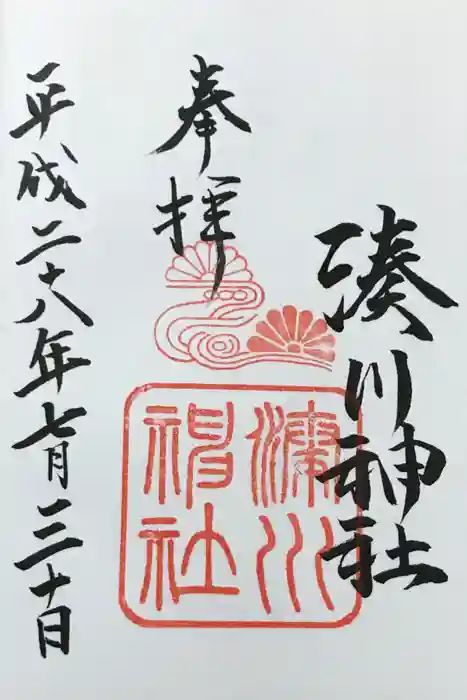 湊川神社
奉拝
湊川
神社
平成二十八年七月三十日